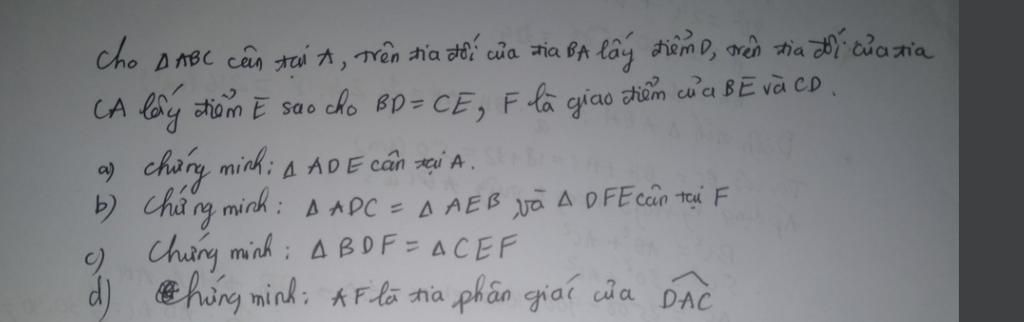 Cho ΔABC cân tại A, trên tia đối của tia BA lấy điểm D, trên tia đối của tia
CA lấy điểm E sao cho BD = CE, F là giao điểm của BE và CD.
a) chứng minh: Δ ADE cân tại A.
b) Chứng minh: Δ ADC = Δ AEB và Δ DFE cân tại F
c) Chứng minh: Δ BDF = Δ CEF
d) Chứng minh: AF là tia phân giác của \widehat{DAC}